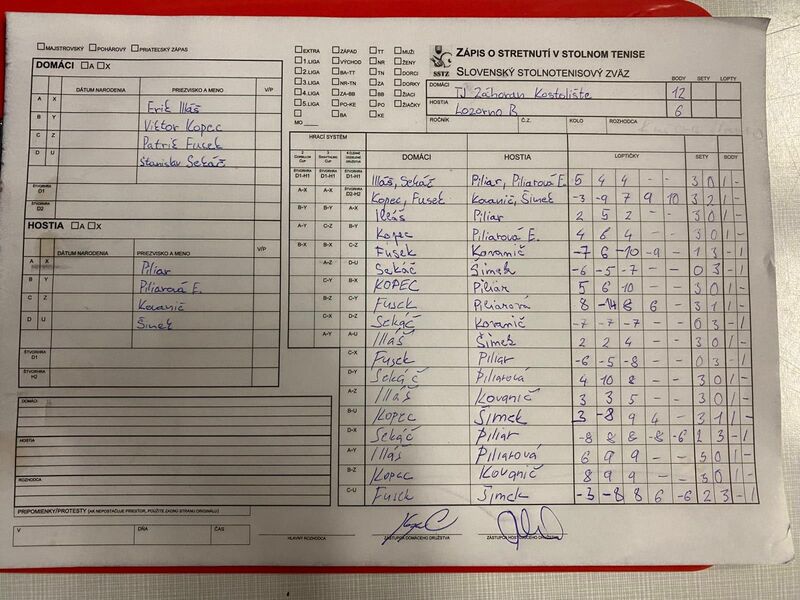 MAJSTROVSKÝ POHÁROVÝ PRIATEĽSKÝ ZÁPAS
DOMÁCI A X
DÁTUM NARODENIA PRIEZVISKO A MENO V/P
A X Erik Illáš
B Y Viktor Kopec
C Z Patrik Fucek
D U Stanislav Sekáč
ŠTVORHRA D1
ŠTVORHRA D2
HOSTIA A X
DÁTUM NARODENIA PRIEZVISKO A MENO V/P
A X Piliar
B Y Piliarová E.
C Z Kovanič
D U Šimek
ŠTVORHRA D1
ŠTVORHRA H2
DOMÁCI
HOSTIA
ROZHODCA
PRIPOMIENKY/PROTESTY (AK NEPOSTAČUJE PRIESTOR, POUŽITE ZADNÚ STRANU ORIGINÁLU)
V DŇA ČAS
EXTRA ZÁPAD TT MUŽI
1.LIGA VÝCHOD NR ŽENY
2.LIGA BA-TT TN DORCI
3.LIGA NR-TN ZA DORKY
4.LIGA ZA-BB BB ŽIACI
5.LIGA PO-KE PO ŽIAČKY
BA KE
MO
SSTZ
ZÁPIS O STRETNUTÍ V STOLNOM TENISE
SLOVENSKÝ STOLNOTENISOVÝ ZVÄZ
BODY SETY LOPTY
DOMÁCI TJ Záhoran Kostolište 12
HOSTIA Lozorno B 6
ROČNÍK Č.Z. KOLO ROZHODCA
HRACÍ SYSTÉM
DOMÁCI HOSTIA LOPTIČKY SETY BODY
D1-H1 D1-H1 D1-H1 Illáš, Sekáč Piliar, Piliarová E. 5 4 4 - - 3 0 1 -
A-X A-X D2-H2 Kopec, Fusek Kovanič, Šimek -3 -9 7 9 10 3 2 1 -
B-Y B-Y A-X Illáš Piliar 2 5 2 - - 3 0 1 -
A-Y C-Z B-Y Kopec Piliarová E. 4 6 4 - - 3 0 1 -
B-X B-X C-Z Fusek Kovanič -7 6 -10 -9 - 1 3 - 1
A-Z D-U Sekáč Šimek -6 -5 -7 - - 0 3 - 1
C-Y B-X KOPEC Piliar 5 6 10 - - 3 0 1 -
B-Z C-Y Fusek Piliarová 8 -14 8 6 - 3 1 1 -
C-X D-Z Sekáč Kovanič -7 -7 -7 - - 0 3 - 1
A-Y A-U Illáš Šimek 2 2 4 - - 3 0 1 -
C-X Fusek Piliar -6 -5 -8 - - 0 3 - 1
D-Y Sekáč Piliarová 4 10 8 - - 3 0 1 -
A-Z Illáš Kovanič 3 3 5 - - 3 0 1 -
B-U Kopec Šimek 3 -8 9 4 - 3 1 1 -
D-X Sekáč Piliar -8 8 8 -8 -6 2 3 - 1
A-Y Illáš Piliarová 6 9 9 - - 3 0 1 -
B-Z Kopec Kovanič 8 9 9 - - 3 0 1 -
C-U Fusek Šimek -3 -8 8 6 -6 2 3 - 1
HLAVNÝ ROZHODCA ZÁSTUPCA DOMÁCEHO DRUŽSTVA ZÁSTUPCA HOSŤUJÚCEHO DRUŽSTVA